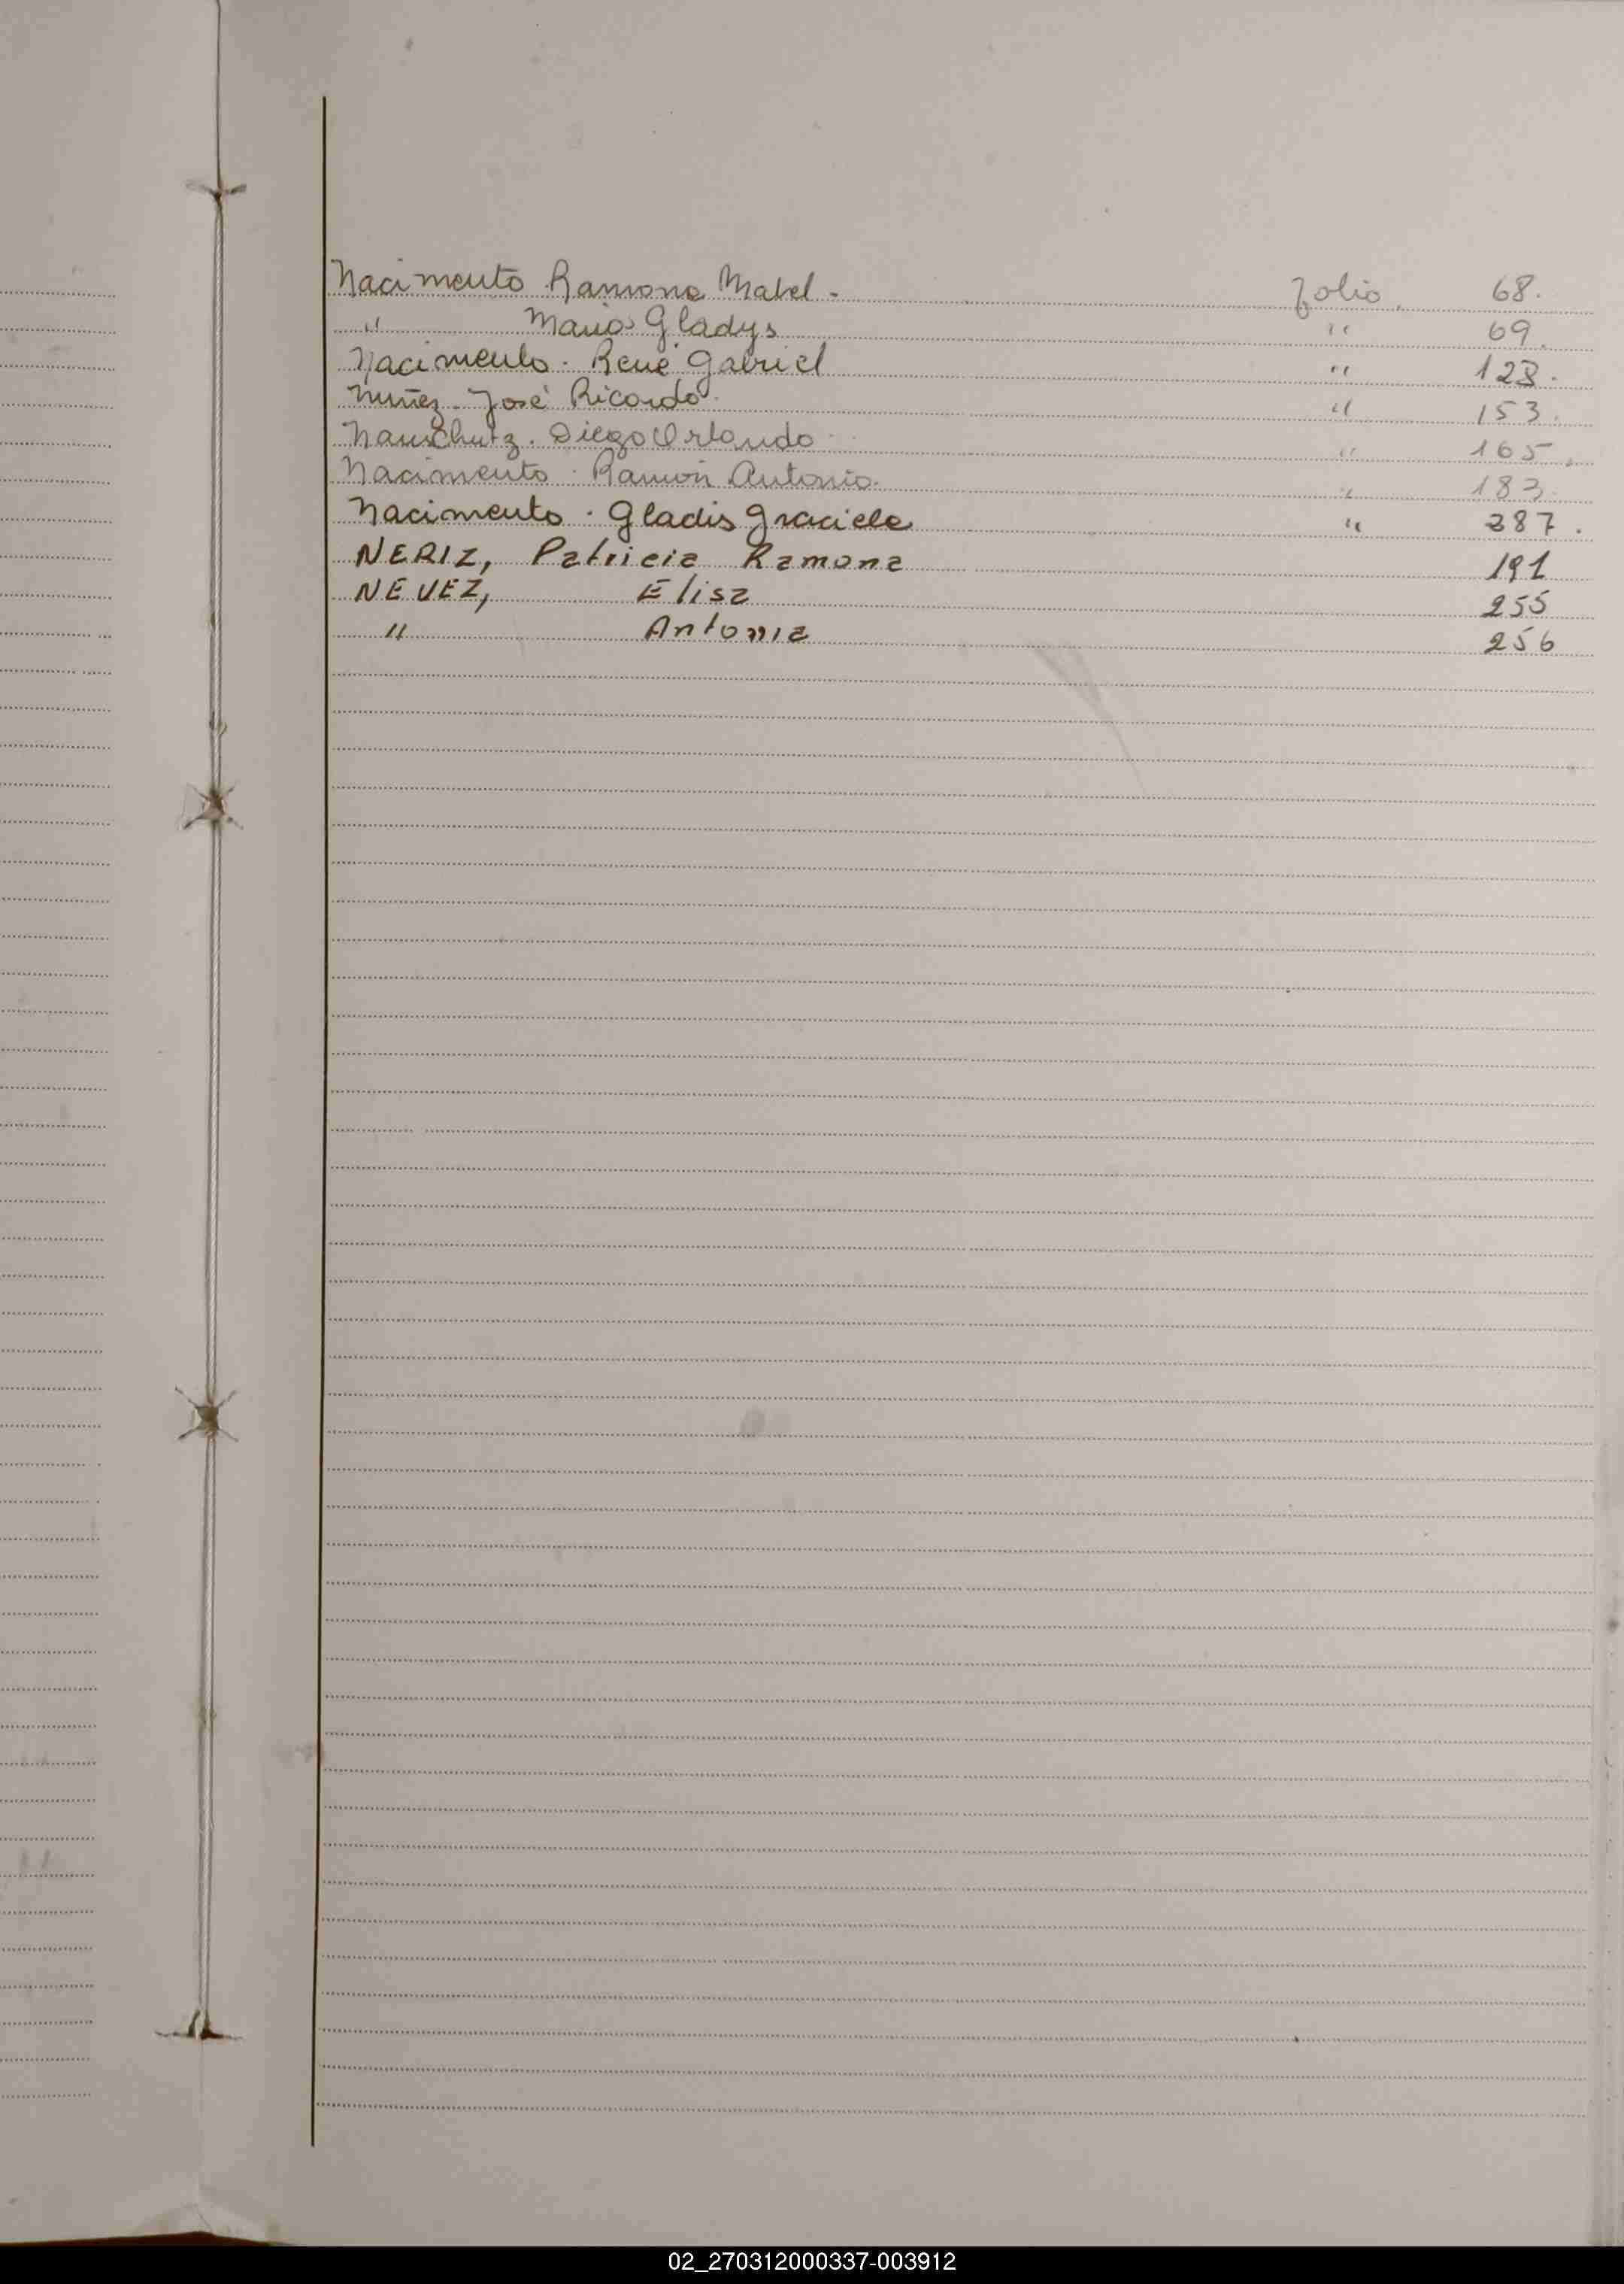 Nacimento Ramona Mabel. Folio. 68.
" Maria Gladys " 69.
Nacimento. René Gabriel " 123.
Nuñez. José Ricardo. " 153.
Diego Orlando " 165.
Nacimento. Ramón Antonio. " 183.
Nacimento. Gladis Graciela " 287.
NERIZ, Patricia Ramona 191
NEVEZ, Elisa 255
" Antonia 256
02_270312000337-003912